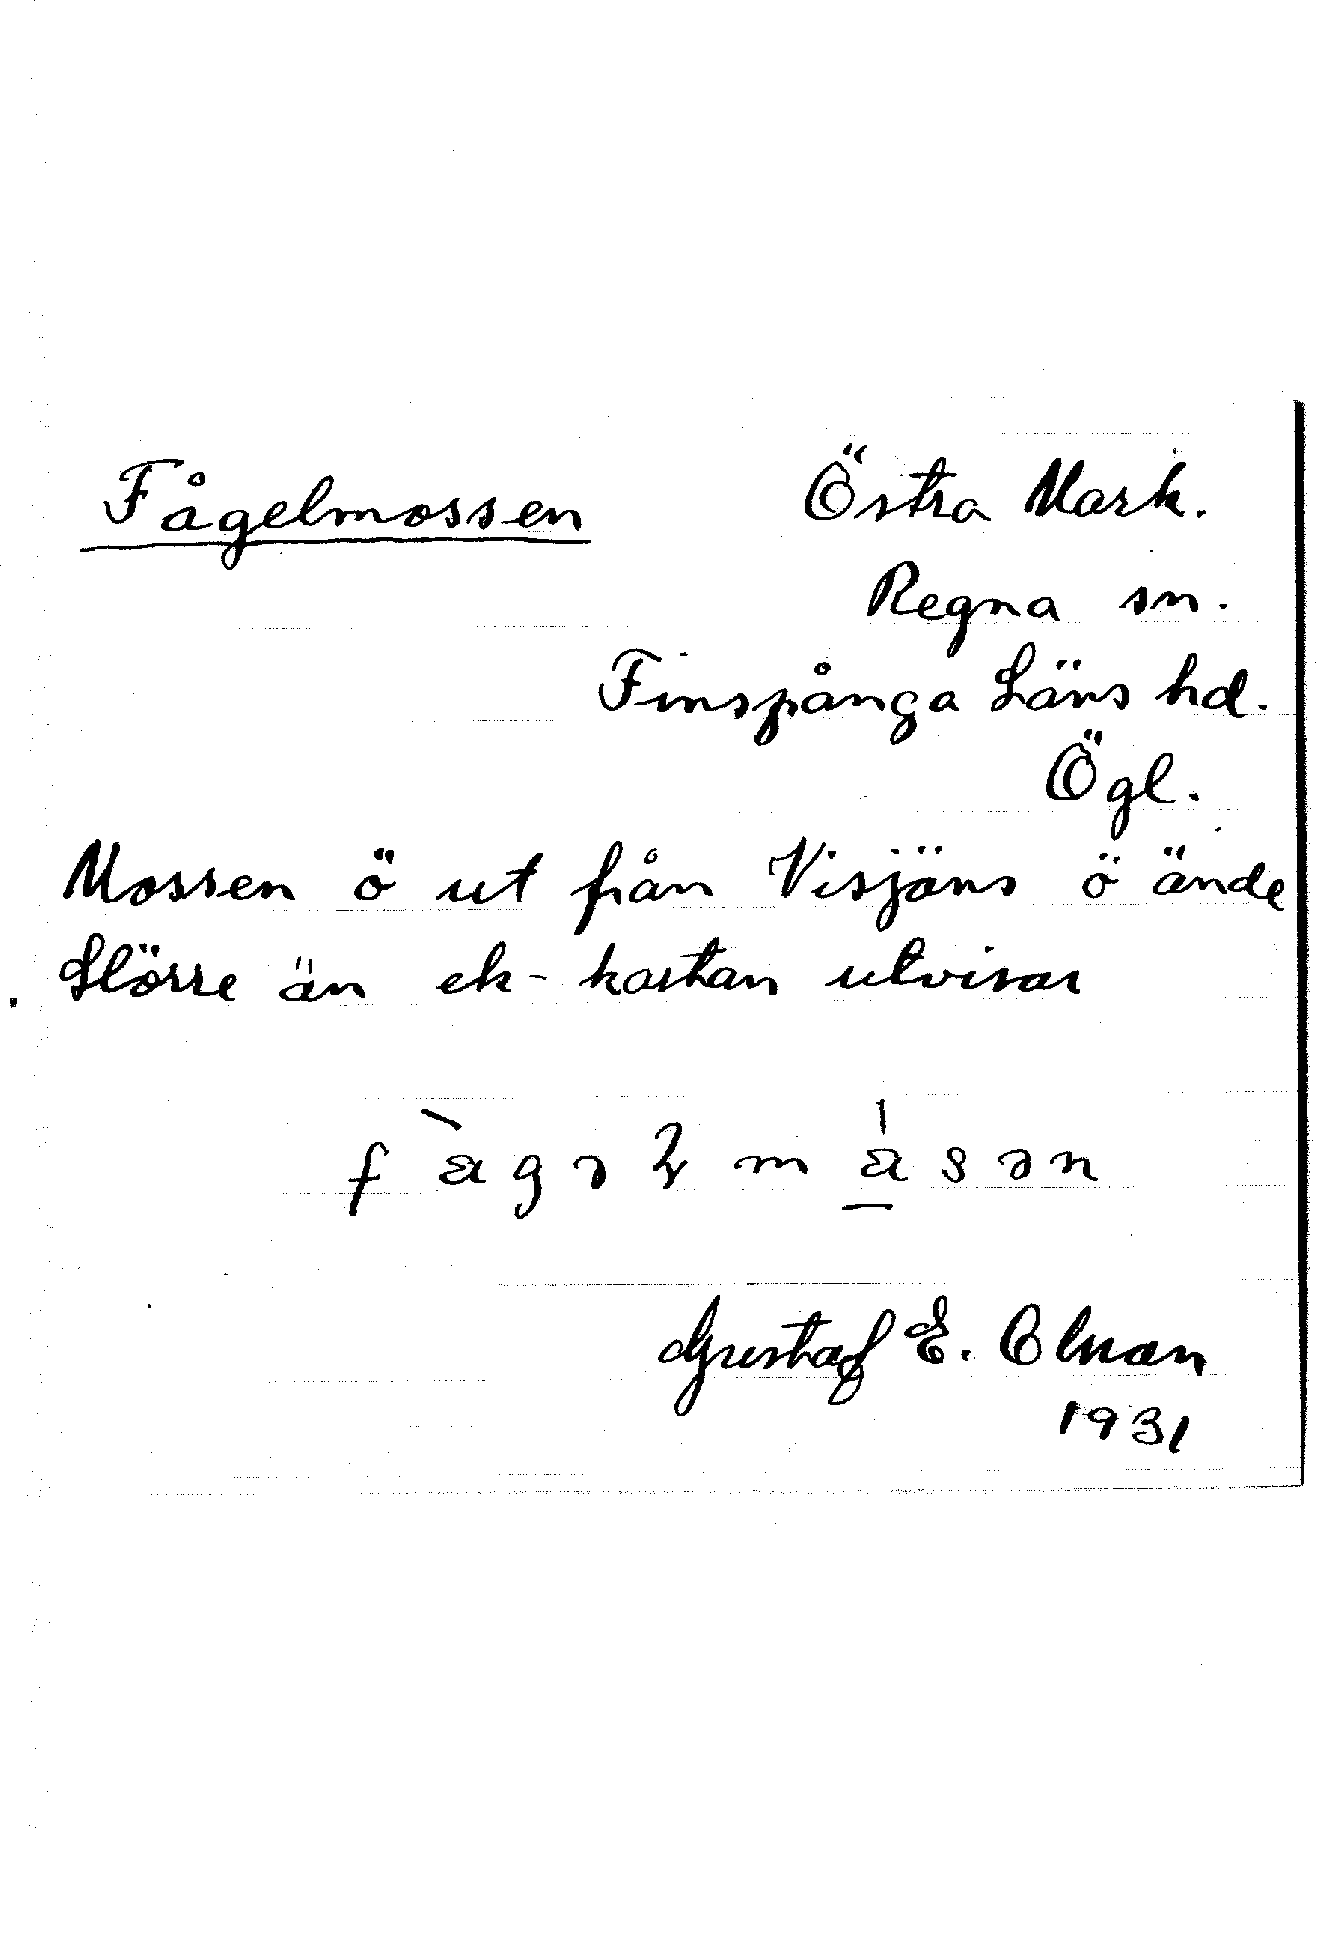 Fågelmossen Östra Mark.
Regna sn.
Finspånga Läns hd.
Ögl.
Mossen ö ut från Visjöns ö ände
Större än ek-kartan utvisar
Gustaf E. Olman
1931